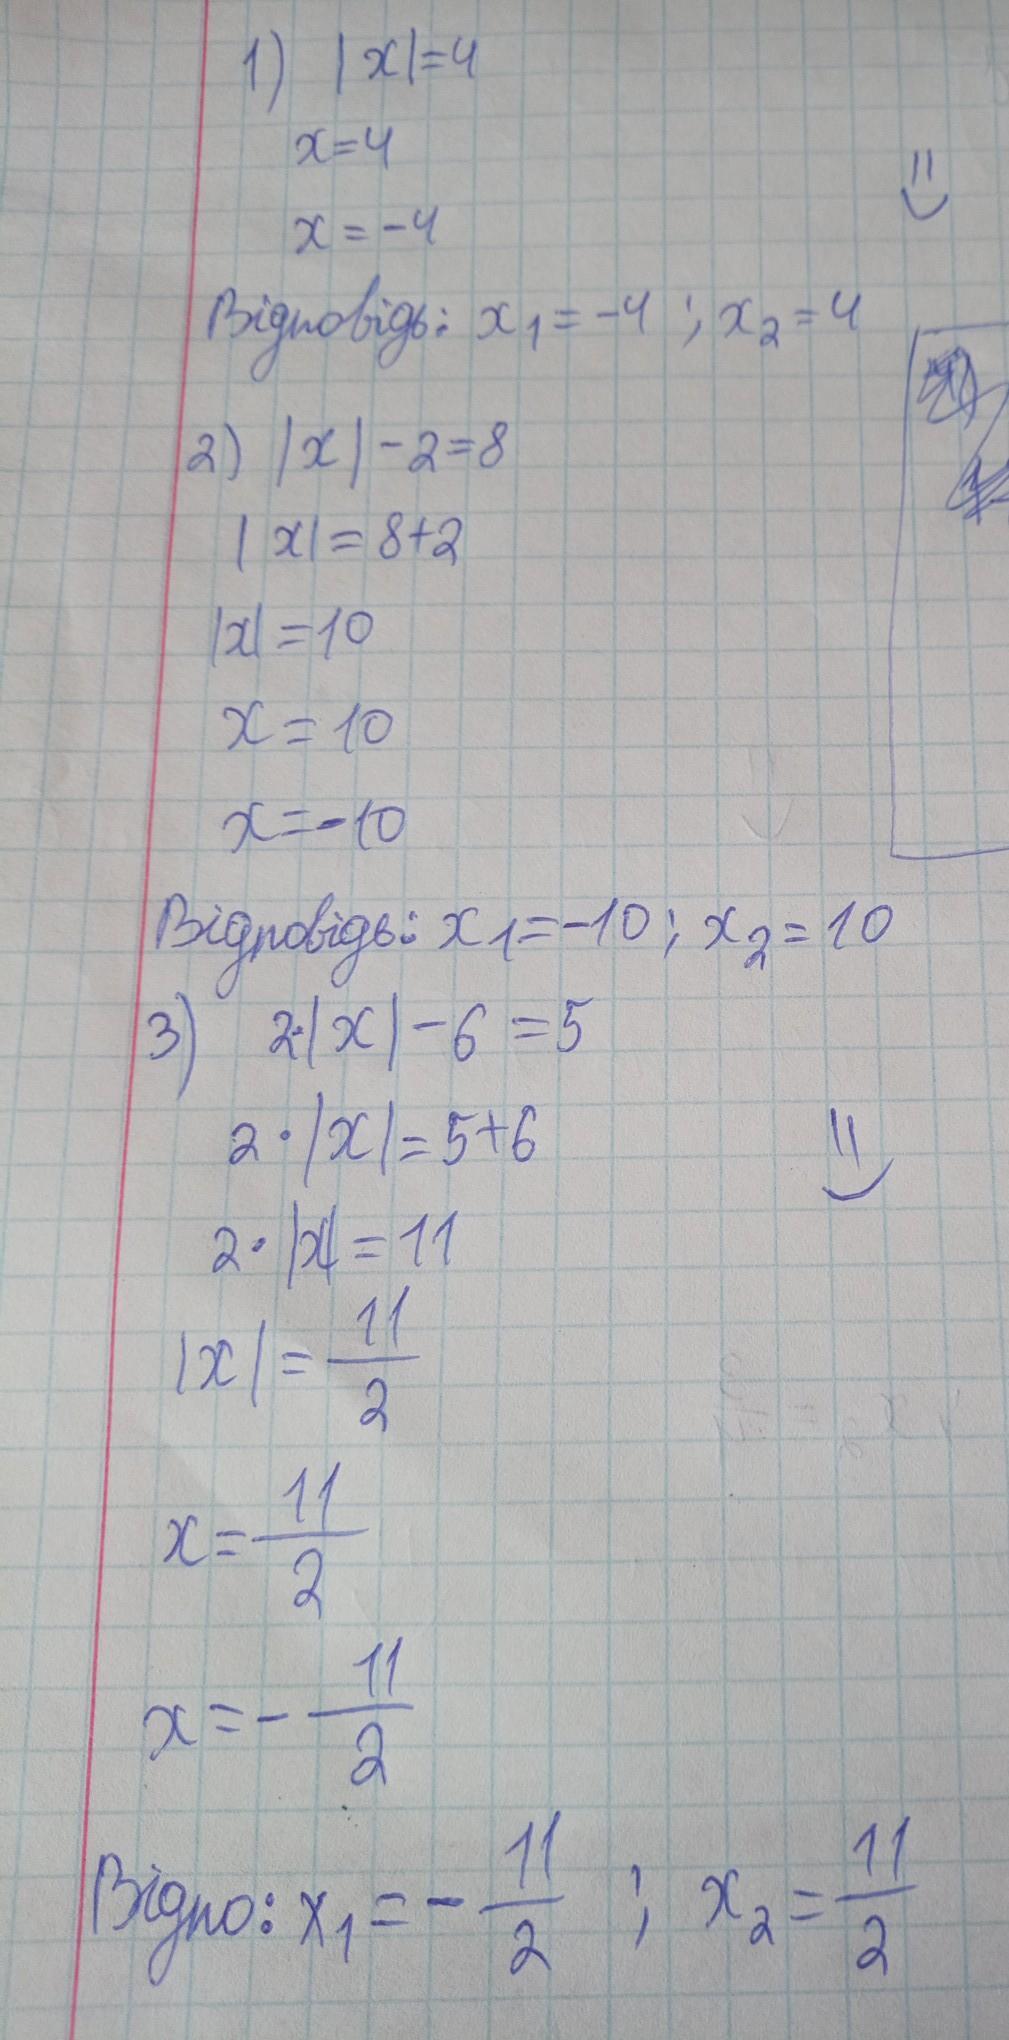 1) |x|=4
x=4
x=-4
Відповідь: x₁=-4; x₂=4
2) |x|-2=8
|x|=8+2
|x|=10
x=10
x=-10
Відповідь: x₁=-10; x₂=10
3) 2·|x|-6=5
2·|x|=5+6
2·|x|=11
|x|=11/2
x=11/2
x=-11/2
Відпо: x₁=-11/2; x₂=11/2